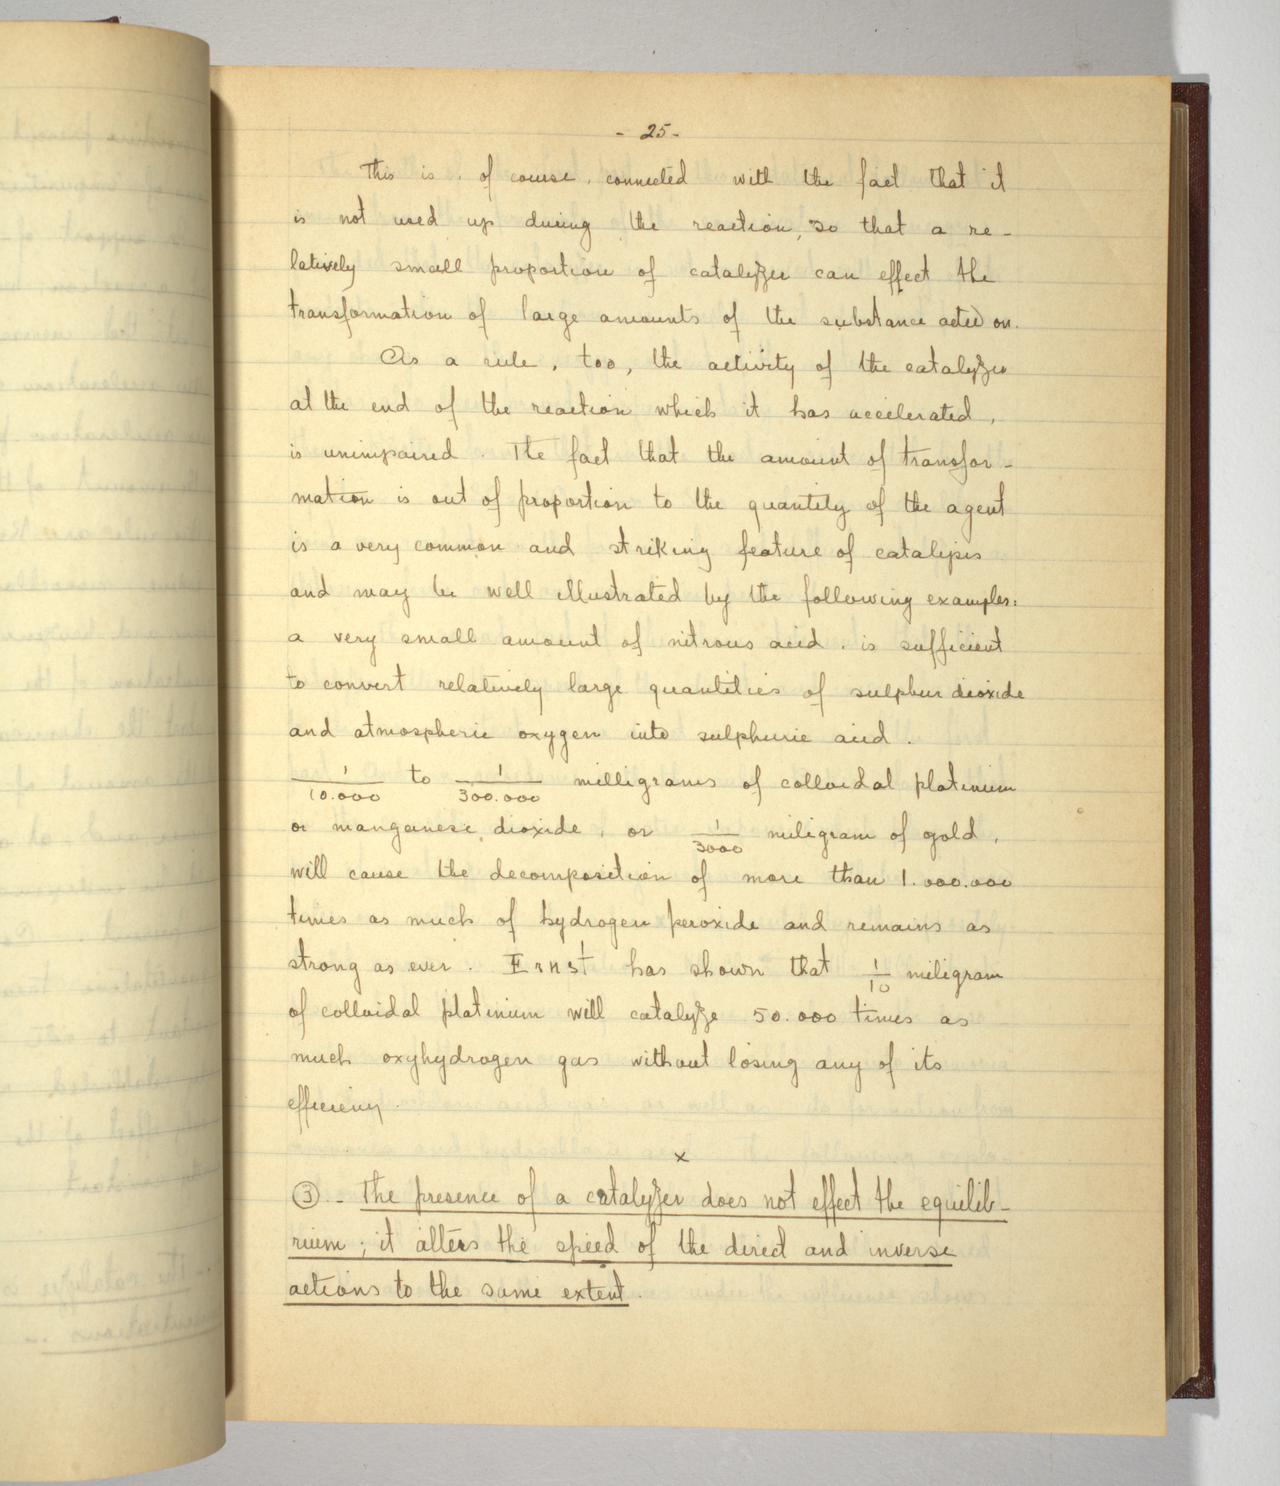 - 25 -
This is, of course, connected with the fact that it
is not used up during the reaction, so that a re-
latively small proportion of catalyzer can effect the
transformation of large amounts of the substance acted on.
As a rule, too, the activity of the catalyzer
at the end of the reaction which it has accelerated,
is unimpaired. The fact that the amount of transfor-
mation is out of proportion to the quantity of the agent
is a very common and striking feature of catalysis
and may be well illustrated by the following examples:
a very small amount of nitrous acid, is sufficient
to convert relatively large quantities of sulphur dioxide
and atmospheric oxygen into sulphuric acid.
1/10.000 to 1/300.000 milligrams of colloidal platinium
or manganese dioxide, or 1/3000 miligram of gold,
will cause the decomposition of more than 1.000.000
times as much of hydrogen peroxide and remains as
strong as ever. Ernst has shown that 1/10 miligram
of colloidal platinium will catalyze 50.000 times as
much oxyhydrogen gas without losing any of its
efficiency.
x
③ - The presence of a catalyzer does not effect the equilib-
rium; it alters the speed of the direct and inverse
actions to the same extent.